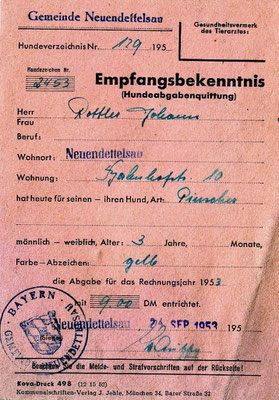 Gemeinde Neuendettelsau
Gesundheitsvermerk
des Tierarztes:
Hundeverzeichnis Nr. 129 195
Hundezeichen Nr.
2453
Empfangsbekenntnis
(Hundeabgabenquittung)
Herr Rottler Johann
Frau
Beruf:
Wohnort: Neuendettelsau
Wohnung: 10
hat heute für seinen – ihren Hund, Art: Pinscher
männlich – weiblich, Alter: 3 Jahre, Monate,
Farbe - Abzeichen: gelb
die Abgabe für das Rechnungsjahr 1953
mit 9.00 DM entrichtet.
Neuendettelsau 24. SEP. 1953 195
BAYERN
Siegel
Beachten Sie die Melde- und Strafvorschriften auf der Rückseite!
Kova-Druck 498 (12 15 52)
Kommunalschriften-Verlag J. Jehle, München 34, Barer Straße 32